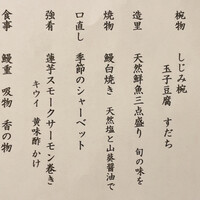 椀物 しじみ椀
玉子豆腐 すだち
造里 天然鮮魚三点盛り 旬の味を
焼物 鰻白焼き 天然塩と山葵醤油で
口直し 季節のシャーベット
強肴 蓮芋スモークサーモン巻き
キウイ 黄味酢かけ
食事 鰻重 吸物 香の物